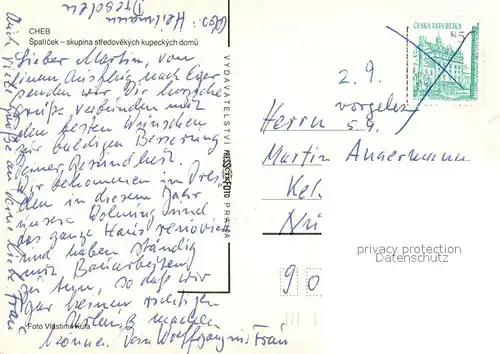 CHEB
Špalíček – skupina středověkých kupeckých domů
Lieber Martin, von
einem Ausflug nach Eger
senden wir Dir herzliche
Grüße verbunden mit
den besten Wünschen
zur baldigen Besserung
Deiner Gesundheit.
Wir bekommen in Dres-
den in diesem Jahr
unsere Wohnung und
das ganze Haus renoviert
und haben ständig
mit Bauarbeiten
zu tun, so daß wir
gar keinen richtigen
machen
können. Dein Wolfgang mit Frau
Auch viele Grüße an Deine liebe Frau
Dresden
Foto Vlastimil Kula
VYDAVATELSTVÍ
PRAHA
ČESKÁ REPUBLIKA
Kč 5
2.9.
vorgelesen
5.9.
Herrn
Martin Angermann
privacy protection
Datenschutz
90